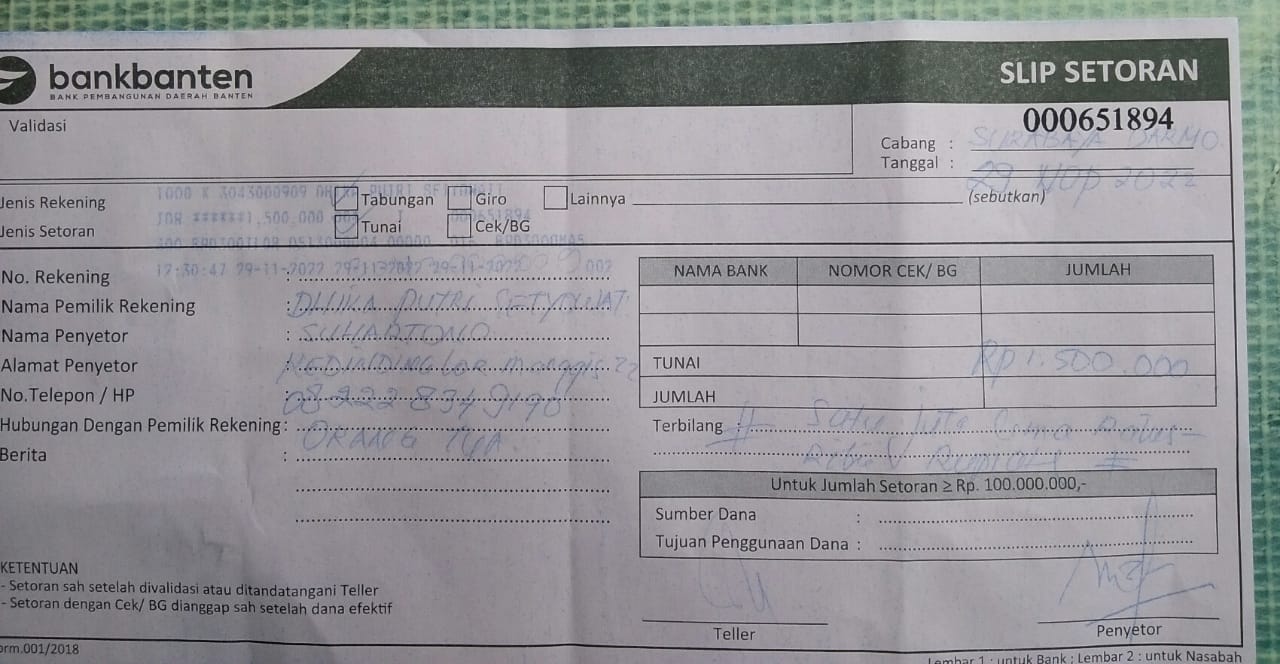 bankbanten
BANK PEMBANGUNAN DAERAH BANTEN
SLIP SETORAN
000651894
Validasi
Cabang : SURABAYA DARMO
Tanggal : 29 NOP 2022
1000 K 3043000909
Jenis Rekening Tabungan Giro Lainnya (sebutkan)
IDR ******1,500,000 000651894
Jenis Setoran Tunai Cek/BG
17:30:47 29-11-2022 29-11-2022 29-11-2022 002
No. Rekening :
Nama Pemilik Rekening : DHIKA PUTRI SETYOWATI
Nama Penyetor : SUHARTONO
Alamat Penyetor : KEDINDING Lor manggis 22
No.Telepon / HP : 08222 834 9198
Hubungan Dengan Pemilik Rekening: ORANG TUA
Berita :
NAMA BANK NOMOR CEK/ BG JUMLAH
TUNAI Rp 1.500.000
JUMLAH
Terbilang : # Satu juta Lima Ratus
Ribu Rupiah #
Untuk Jumlah Setoran ≥ Rp. 100.000.000,-
Sumber Dana :
Tujuan Penggunaan Dana :
KETENTUAN
- Setoran sah setelah divalidasi atau ditandatangani Teller
- Setoran dengan Cek/ BG dianggap sah setelah dana efektif
Teller
Penyetor
orm.001/2018
Lembar 1 : untuk Bank ; Lembar 2 : untuk Nasabah